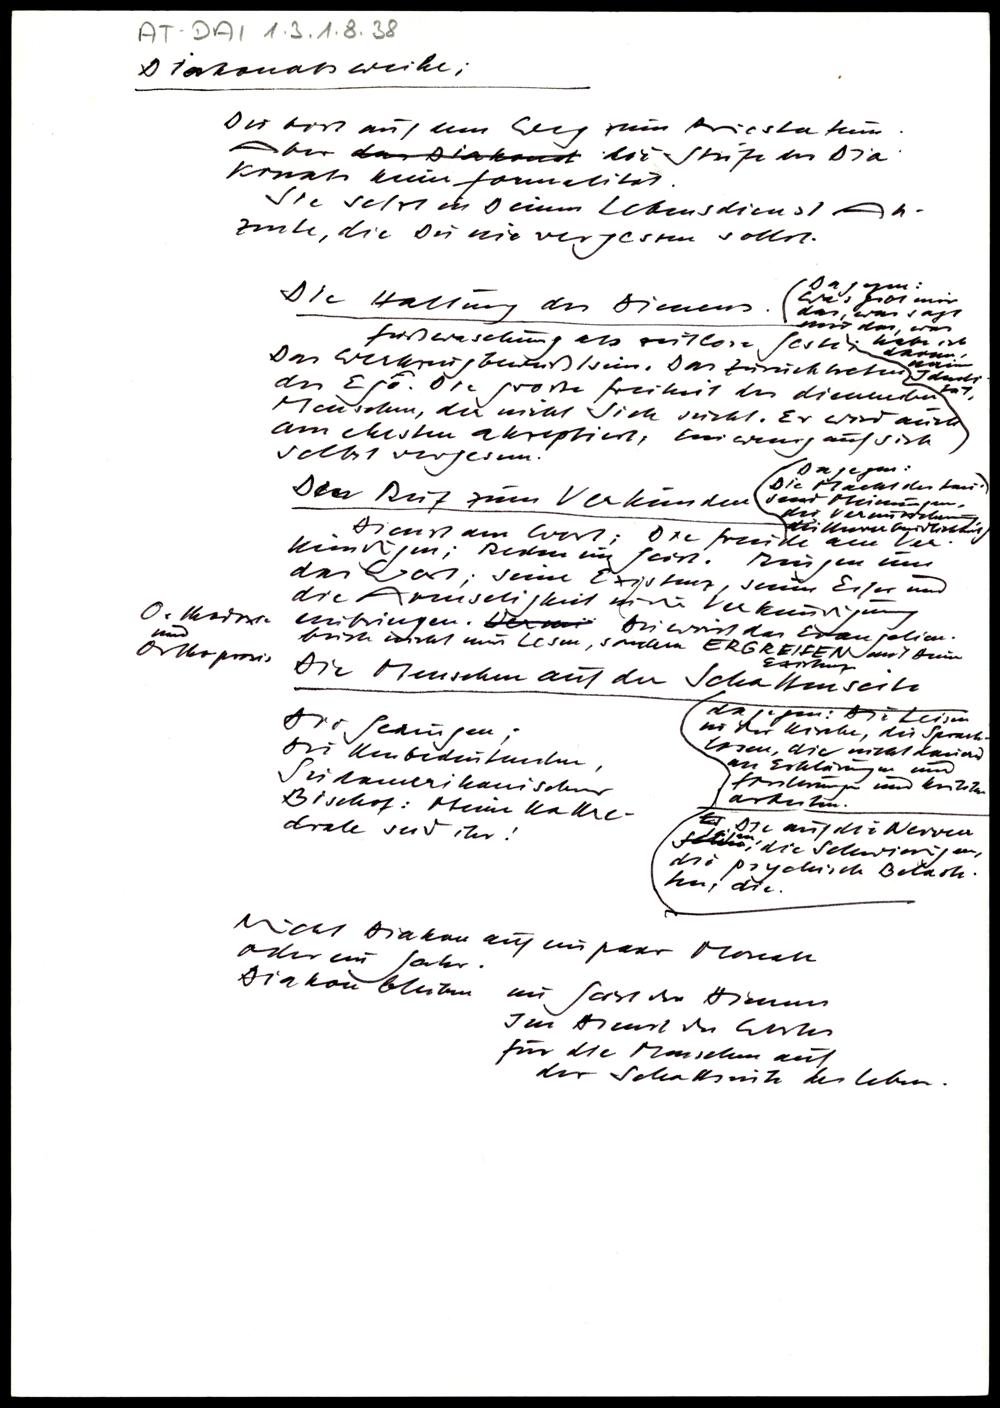 AT-DAI 1.3.1.8.38
Diakonatsweihe;
Du bist auf dem Weg zum Priestertum.
Aber das Diakonat die Stufe des Dia
konats keine Formalität.
Sie setzt in Deinem Lebensdienst Ak-
zente, die Du nie vergessen sollst.
Die Haltung des Dienens.
(Dagegen:
was gibt mir
das, was sagt
mir das, was
habe ich
davon,
mein
Identi-
tät,
Fußwaschung als zeitlose Geste;
Das Werkzeugbewußtsein. Das Zurücktreten
des Ego. Die große Freiheit des dienenden
Menschen, der nicht sich sucht. Er wird auch
am ehesten akzeptiert; ein wenig auf sich
selbst vergessen.
Der Ruf zum Verkünden
(Dagegen:
Die Macht der tau-
send Meinungen,
die Vermischung
die Unverbindlichkeit)
Dienst am Wort; Die Freude am Ver-
kündigen; Reden im Geist. Ringen um
das Wort; seine Existenz, seinen Eifer und
die Armseligkeit in die Verkündigung
einbringen. Du wirst das Evangelien-
buch nicht nur lesen, sondern ERGREIFEN mit Deiner
Existenz
Orthodoxie
und
Orthopraxis
Die Menschen auf der Schattenseite
Die Geringen;
Die Unbedeutenden,
Südamerikanischer
Bischof: Meine Kathe-
drale seid ihr!
dagegen: Die Leisen
in der Kirche, die Sprach-
losen, die nicht dauernd
an Erklärungen und
Forderungen und Kritiken
arbeiten.
Die auf die Nerven
die Schwierigen,
die psychisch Belaste-
ten, die.
Nicht Diakon auf ein paar Monate
oder ein Jahr.
Diakon bleiben im Geist des Dienens
Im Dienst des Wortes
für die Menschen auf
der Schattseite des Lebens.